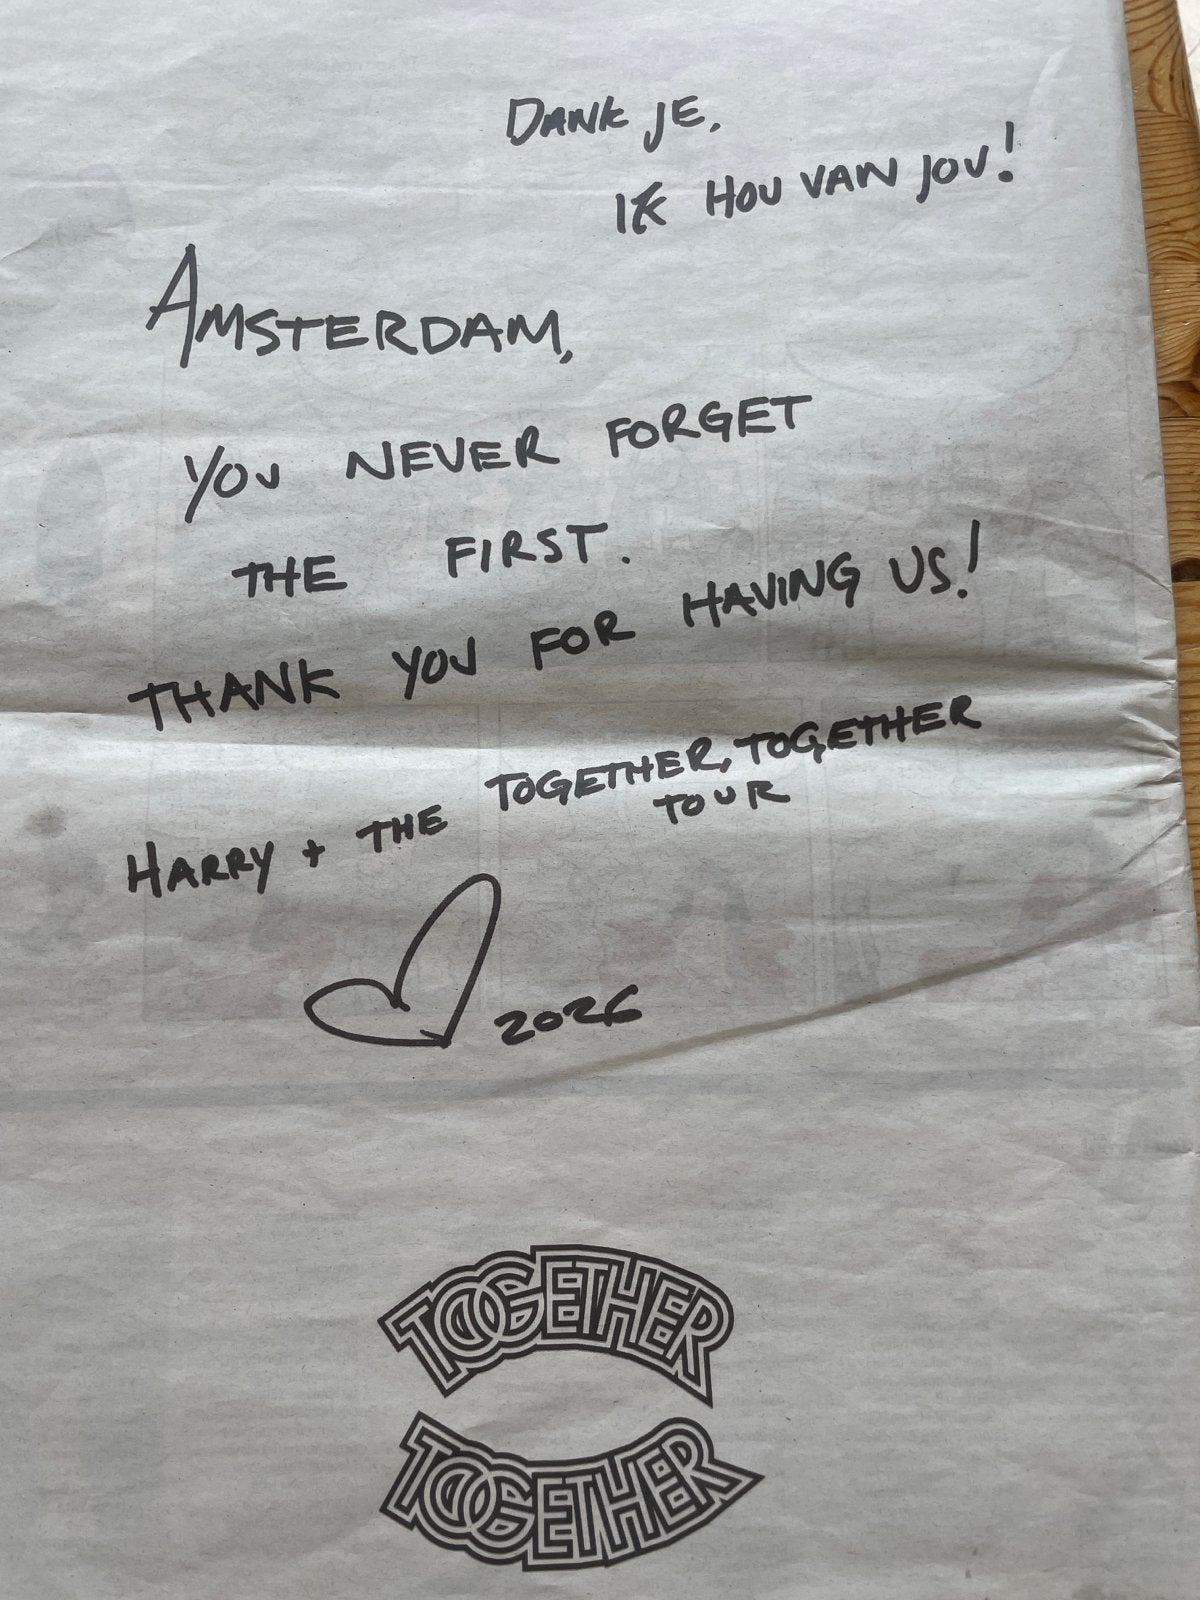 DANK JE.
IK HOU VAN JOU!
AMSTERDAM,
YOU NEVER FORGET
THE FIRST.
THANK YOU FOR HAVING US!
HARRY + THE TOGETHER, TOGETHER
TOUR
2026
TOGETHER
TOGETHER